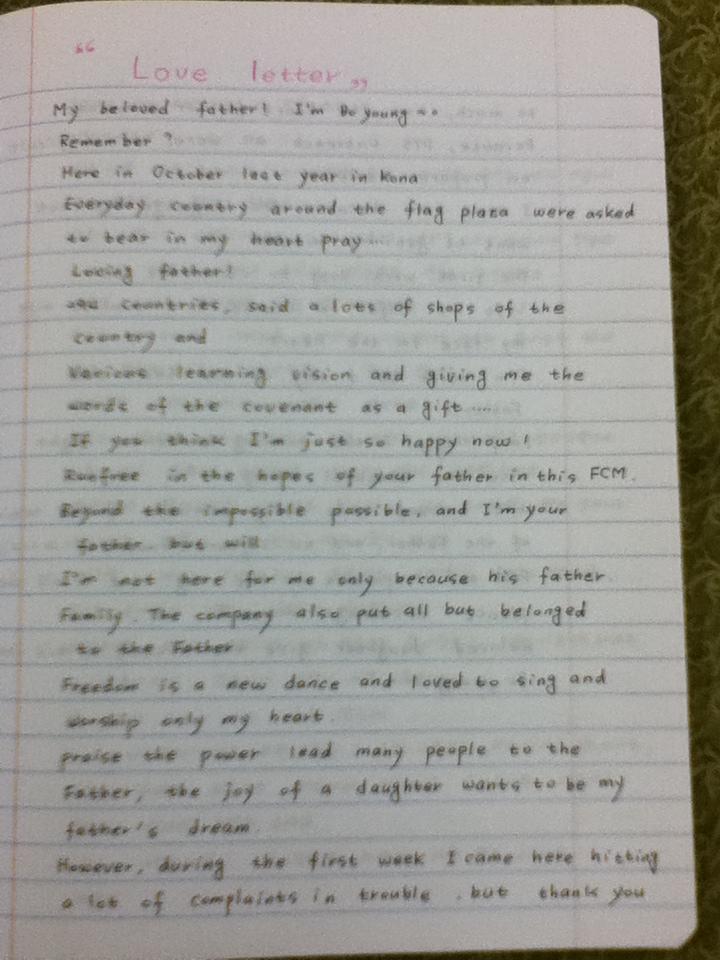 “ Love letter „
My beloved father! I'm Do young ~~
Remember ?
Here in October last year in Kona
Everyday country around the flag plaza were asked
to bear in my heart pray...
Loving father!
countries, said a lots of shops of the
country and
Various learning vision and giving me the
words of the covenant as a gift ....
If you think I'm just so happy now !
Runfree in the hopes of your father in this FCM.
Beyond the impossible possible, and I'm your
father. but will
I'm not here for me only because his father
Family. The company also put all but belonged
to the Father
Freedom is a new dance and loved to sing and
worship only my heart.
praise the power lead many people to the
Father, the joy of a daughter wants to be my
father's dream.
However, during the first week I came here hitting
a lot of complaints in trouble . but thank you